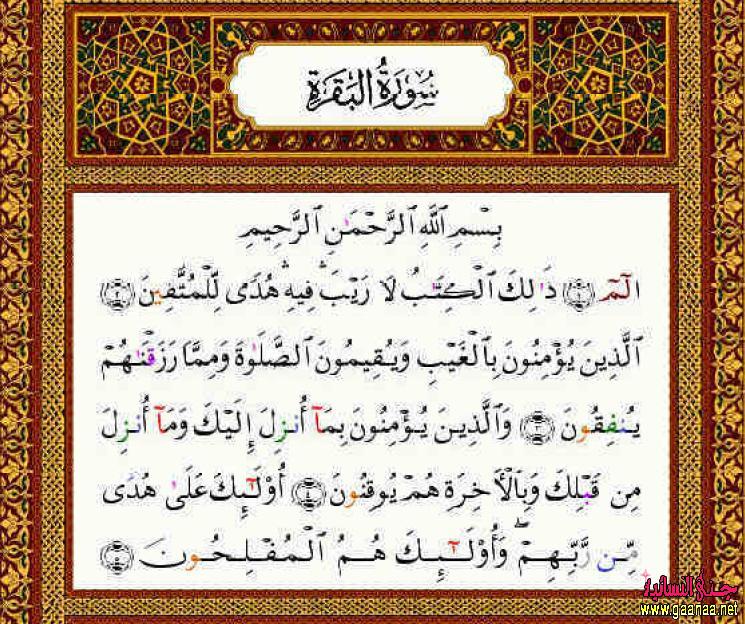 سُورَةُ البَقَرَةِ
بِسْمِ ٱللَّهِ ٱلرَّحْمَٰنِ ٱلرَّحِيمِ
الٓمٓ ﴿١﴾ ذَٰلِكَ ٱلْكِتَٰبُ لَا رَيْبَ ۛ فِيهِ ۛ هُدًى لِّلْمُتَّقِينَ ﴿٢﴾
ٱلَّذِينَ يُؤْمِنُونَ بِٱلْغَيْبِ وَيُقِيمُونَ ٱلصَّلَوٰةَ وَمِمَّا رَزَقْنَٰهُمْ
يُنفِقُونَ ﴿٣﴾ وَٱلَّذِينَ يُؤْمِنُونَ بِمَآ أُنزِلَ إِلَيْكَ وَمَآ أُنزِلَ
مِن قَبْلِكَ وَبِٱلْأَخِرَةِ هُمْ يُوقِنُونَ ﴿٤﴾ أُوْلَٰٓئِكَ عَلَىٰ هُدًى
مِّن رَّبِّهِمْ ۖ وَأُوْلَٰٓئِكَ هُمُ ٱلْمُفْلِحُونَ ﴿٥﴾
www.gaanaa.net